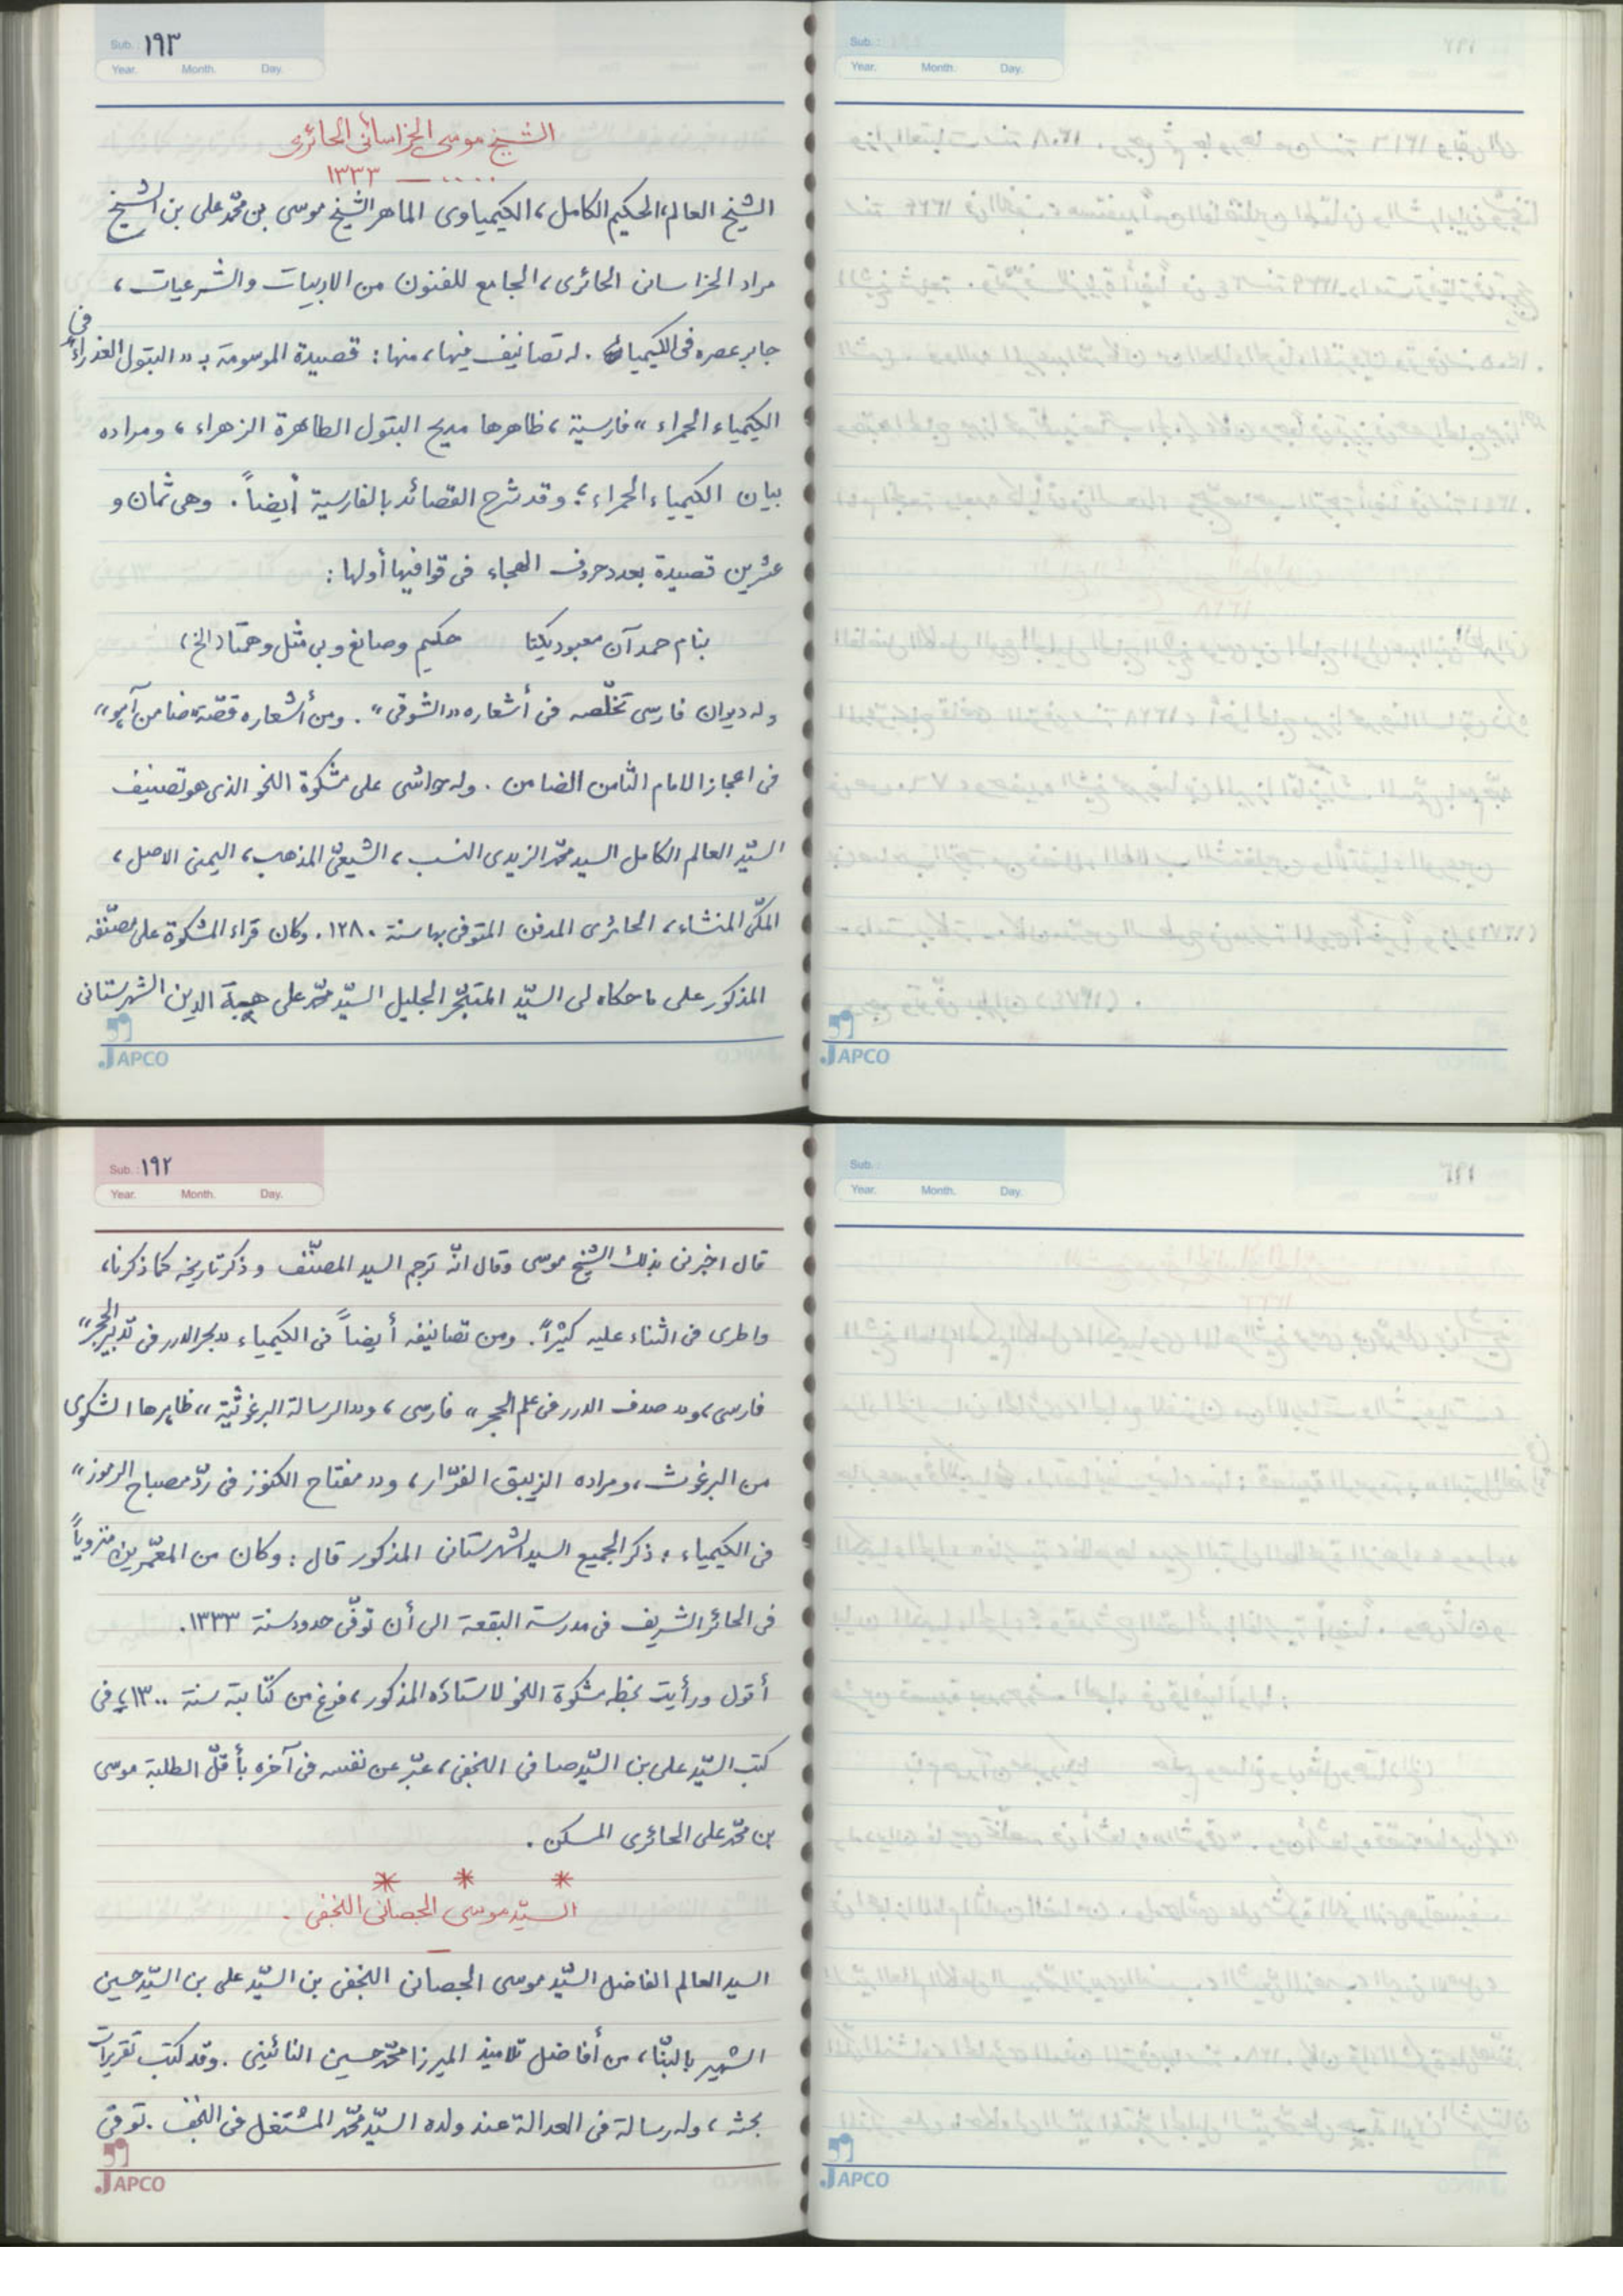 Sub. : ١٩٣
Year. Month. Day.
الشيخ موسى الخراسانى الحائرى
١٣٣٣ — ....
الشيخ العالم، الحكيم الكامل، الكيمياوى الماهر الشيخ موسى بن محمّد على بن الشيخ
مراد الخراسانى الحائرى، الجامع للفنون من الادبيات والشرعيات،
جابر عصره فى الكيمياء. له تصانيف فيها، منها: قصيدة الموسومة بـ «البتول العذراء فى
الكيمياء الحمراء» فارسية، ظاهرها مديح البتول الطاهرة الزهراء، ومراده
بيان الكيمياء الحمراء؛ وقد شرح القصائد بالفارسية أيضاً. وهى ثمان و
عشرين قصيدة بعدد حروف الهجاء فى قوافيها أولها:
بنام حمد آن معبود يكتا حكيم وصانع وبى مثل وهمتا (الخ)
وله ديوان فارسى تخلّصه فى أشعاره «الشوقى». ومن أشعاره قصّة «ضامن آهو»
فى اعجاز الامام الثامن الضامن. وله حواشى على مشكوة النحو الذى هو تصنيف
السيّد العالم الكامل السيد محمّد الزيدى النسب، الشيعىّ المذهب، اليمنى الاصل،
المكّى المنشاء، الحائرى المدفن المتوفى بها سنة ١٢٨٠. وكان قراء المشكوة على مصنّفه
المذكور على ما حكاه لى السيّد المتبحّر الجليل السيّد محمّد على هبة الدين الشهرستانى
JAPCO
Sub. :
Year. Month. Day.
JAPCO
Sub. : ١٩٢
Year. Month. Day.
قال اخبرنى بذلك الشيخ موسى وقال انّه ترجم السيد المصنّف وذكر تاريخه كما ذكرنا،
واطرى فى الثناء عليه كثيراً. ومن تصانيفه أيضاً فى الكيمياء «بحر الدرر فى تدبير الحجر»
فارسى، و«صدف الدرر فى علم الحجر» فارسى، و«الرسالة البرغوثية» ظاهرها الشكوى
من البرغوث، ومراده الزيبق الفرّار، و«مفتاح الكنوز فى ردّ مصباح الرموز»
فى الكيمياء؛ ذكر الجميع السيد الشهرستانى المذكور قال: وكان من المعمّرين منزوياً
فى الحائر الشريف فى مدرسة البقعة الى أن توفّى حدود سنة ١٣٣٣.
أقول ورأيت بخطه مشكوة النحو لاستاذه المذكور، فرغ من كتابته سنة ١٣٠٠، فى
كتب السيّد على بن السيّد صافى النجفى، عبّر عن نفسه فى آخره بأقلّ الطلبة موسى
بن محمّد على الحائرى المسكن.
* * *
السيّد موسى الجصانى النجفى.
—
السيد العالم الفاضل السيّد موسى الجصانى النجفى بن السيّد على بن السيّد حسين
الشهير بالبنّاء، من أفاضل تلاميذ الميرزا محمّد حسين النائينى. وقد كتب تقريرات
بحثه، وله رسالة فى العدالة عند ولده السيّد محمّد المشتغل فى النجف. توفى
JAPCO
Sub. :
Year. Month. Day.
JAPCO